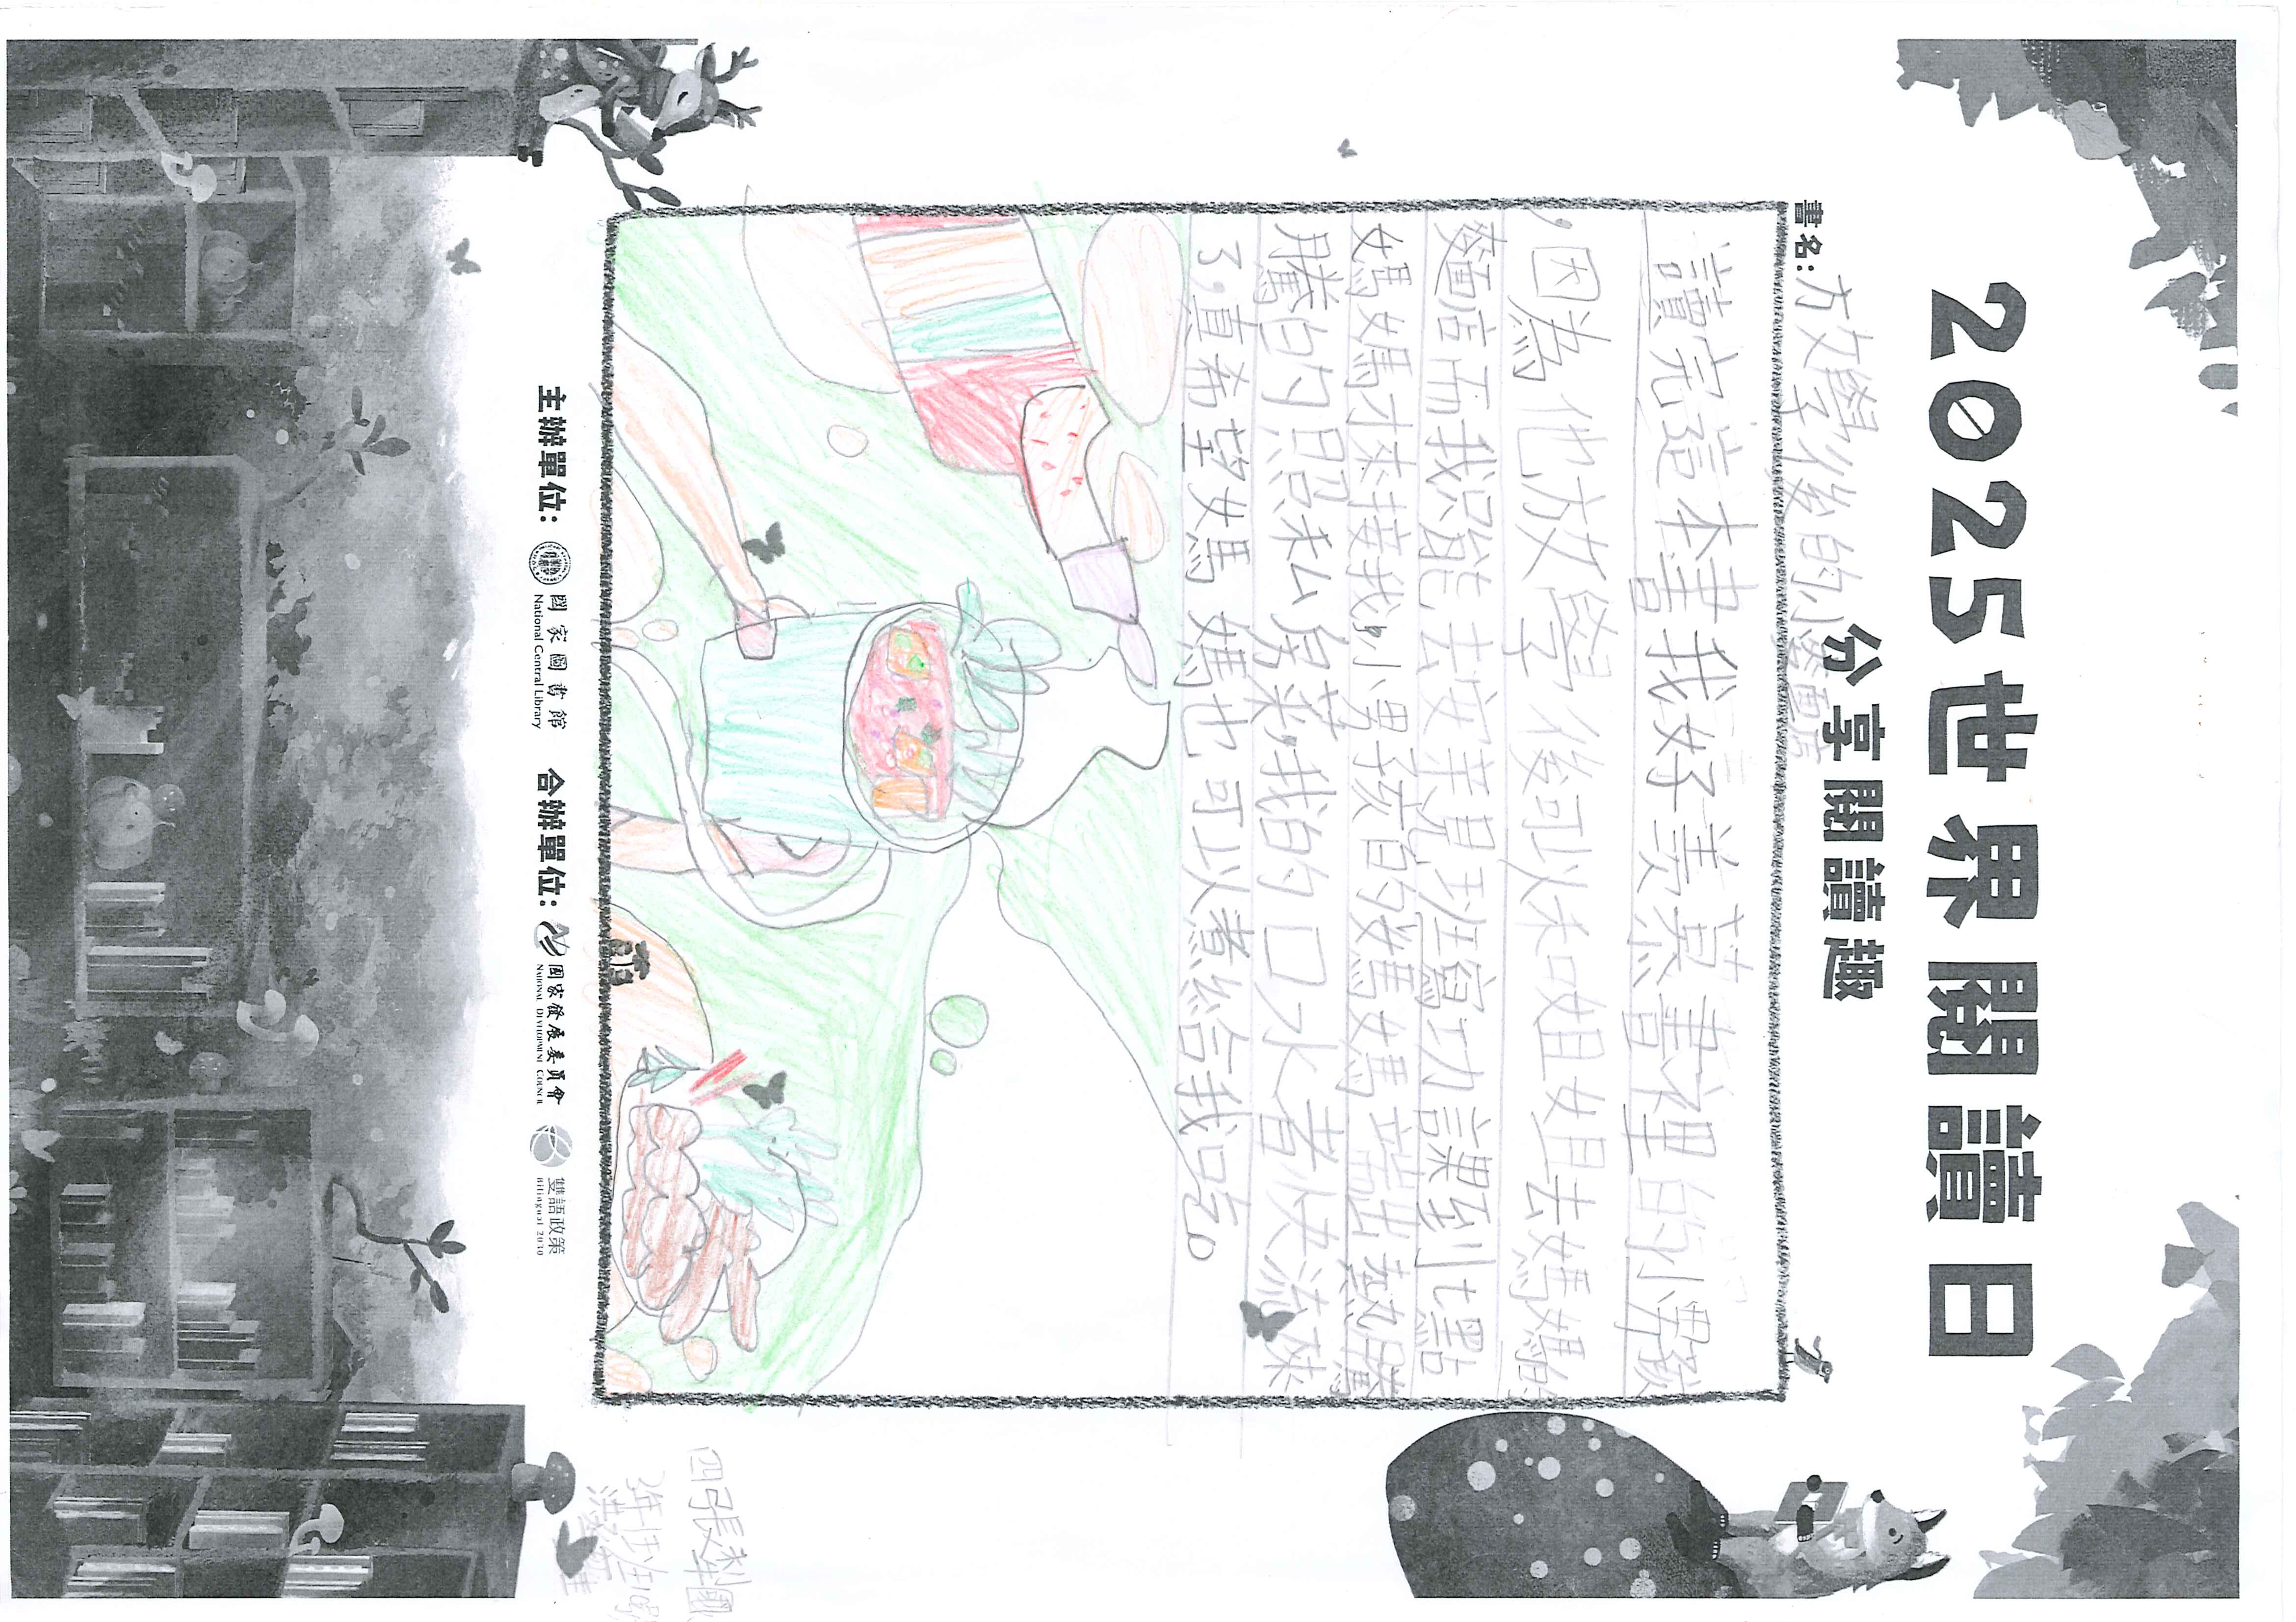 2025世界閱讀日
分享閱讀趣
書名:放學後的小麵店
讀完這本書我好羡慕書裡的小男孩
,因為他放學後可以和姐姐去媽媽的
麵店而我只能去安親班寫功課到七點
媽媽才來接我,小男孩的媽媽端出熱騰
騰的
了,真希望媽媽也可以煮給我吃。
主辦單位:
國家圖書館
National Central Library
合辦單位:
國家發展委員會
NATIONAL DEVELOPMENT COUNCIL
雙語政策
Bilingual 2030